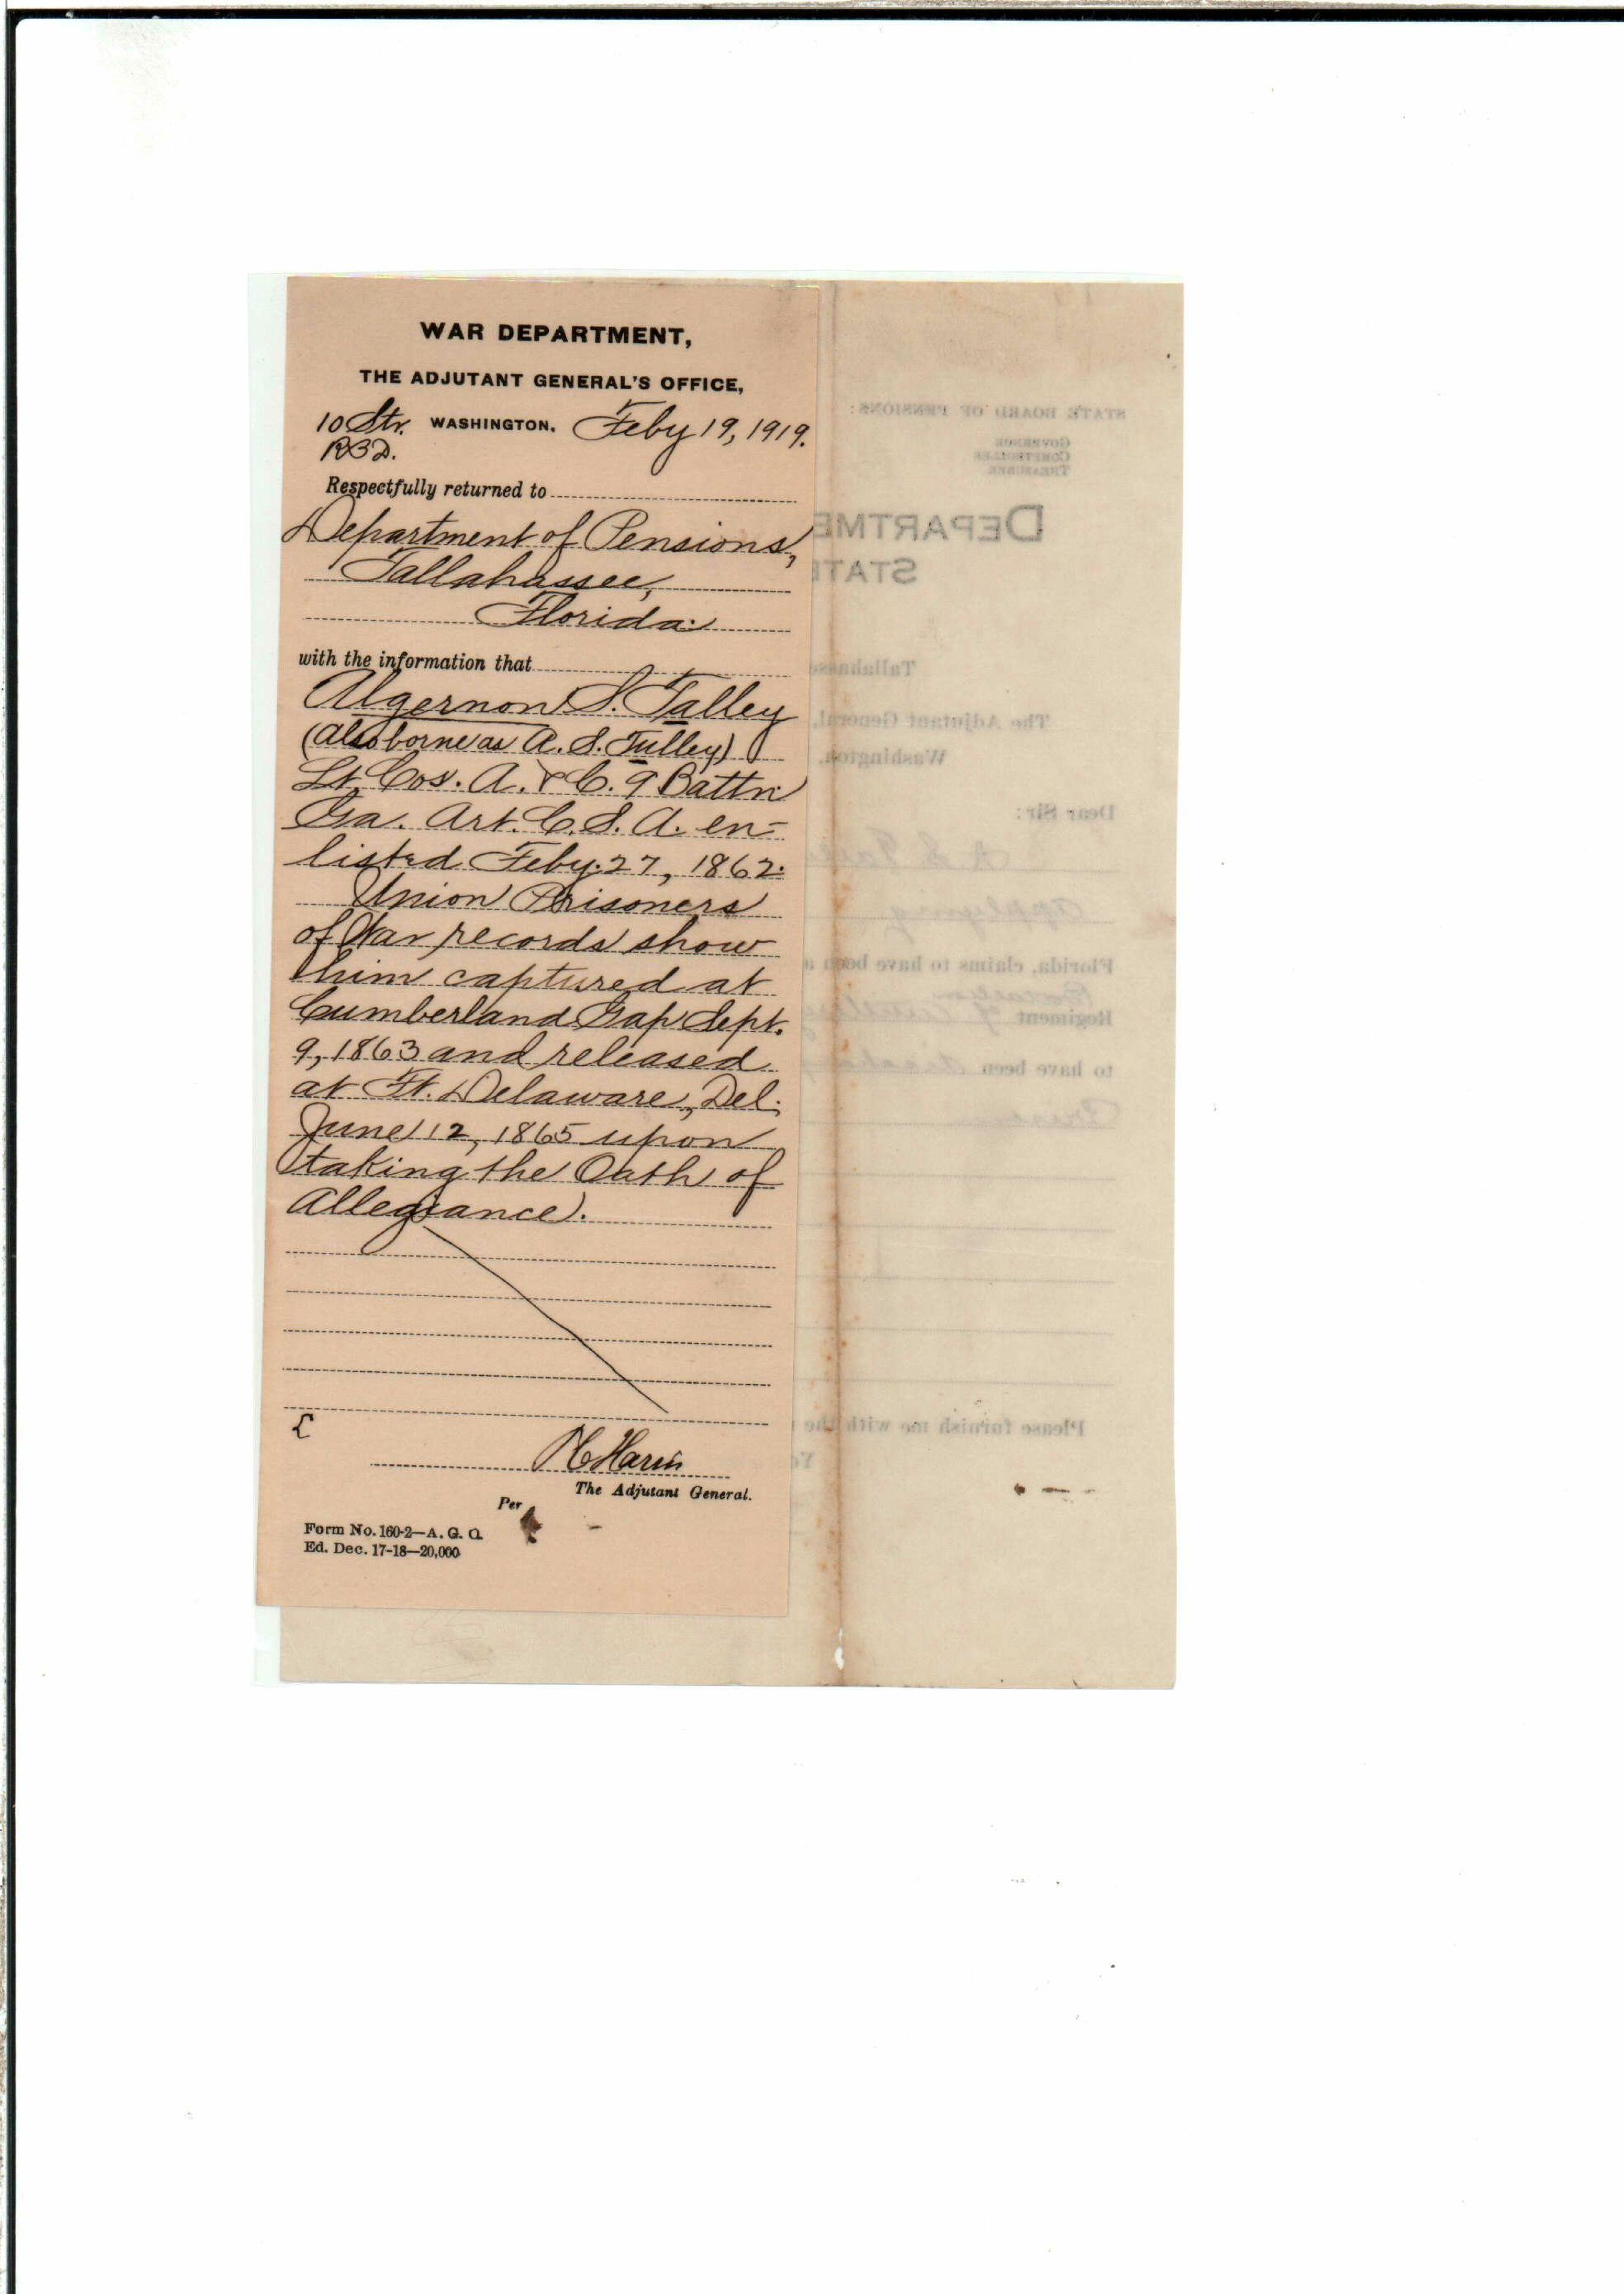 WAR DEPARTMENT,
THE ADJUTANT GENERAL'S OFFICE,
10 Str. WASHINGTON, Feby 19, 1919.
RBD.
Respectfully returned to
Department of Pensions,
Tallahassee,
Florida.
with the information that
Algernon S. Talley
(also borne as A. S. Tulley)
Lt. Cos. A. & C. 9 Battn
Ga. Art. C. S. A. en-
listed Feby. 27, 1862.
Union Prisoners
of War records show
him captured at
Cumberland Gap Sept.
9, 1863 and released
at Ft. Delaware, Del.
June 12, 1865 upon
taking the Oath of
Allegiance.
The Adjutant General.
Per
Form No. 160-2—A. G. O.
Ed. Dec. 17-18—20,000
STATE BOARD OF PENSIONS:
GOVERNOR
COMPTROLLER
TREASURER
DEPARTME
STATE
Tallahasse
The Adjutant General,
Washington,
Dear Sir:
A S Talle
applying
Florida, claims to have been a
Regiment
to have been
Please furnish me with the
Yo